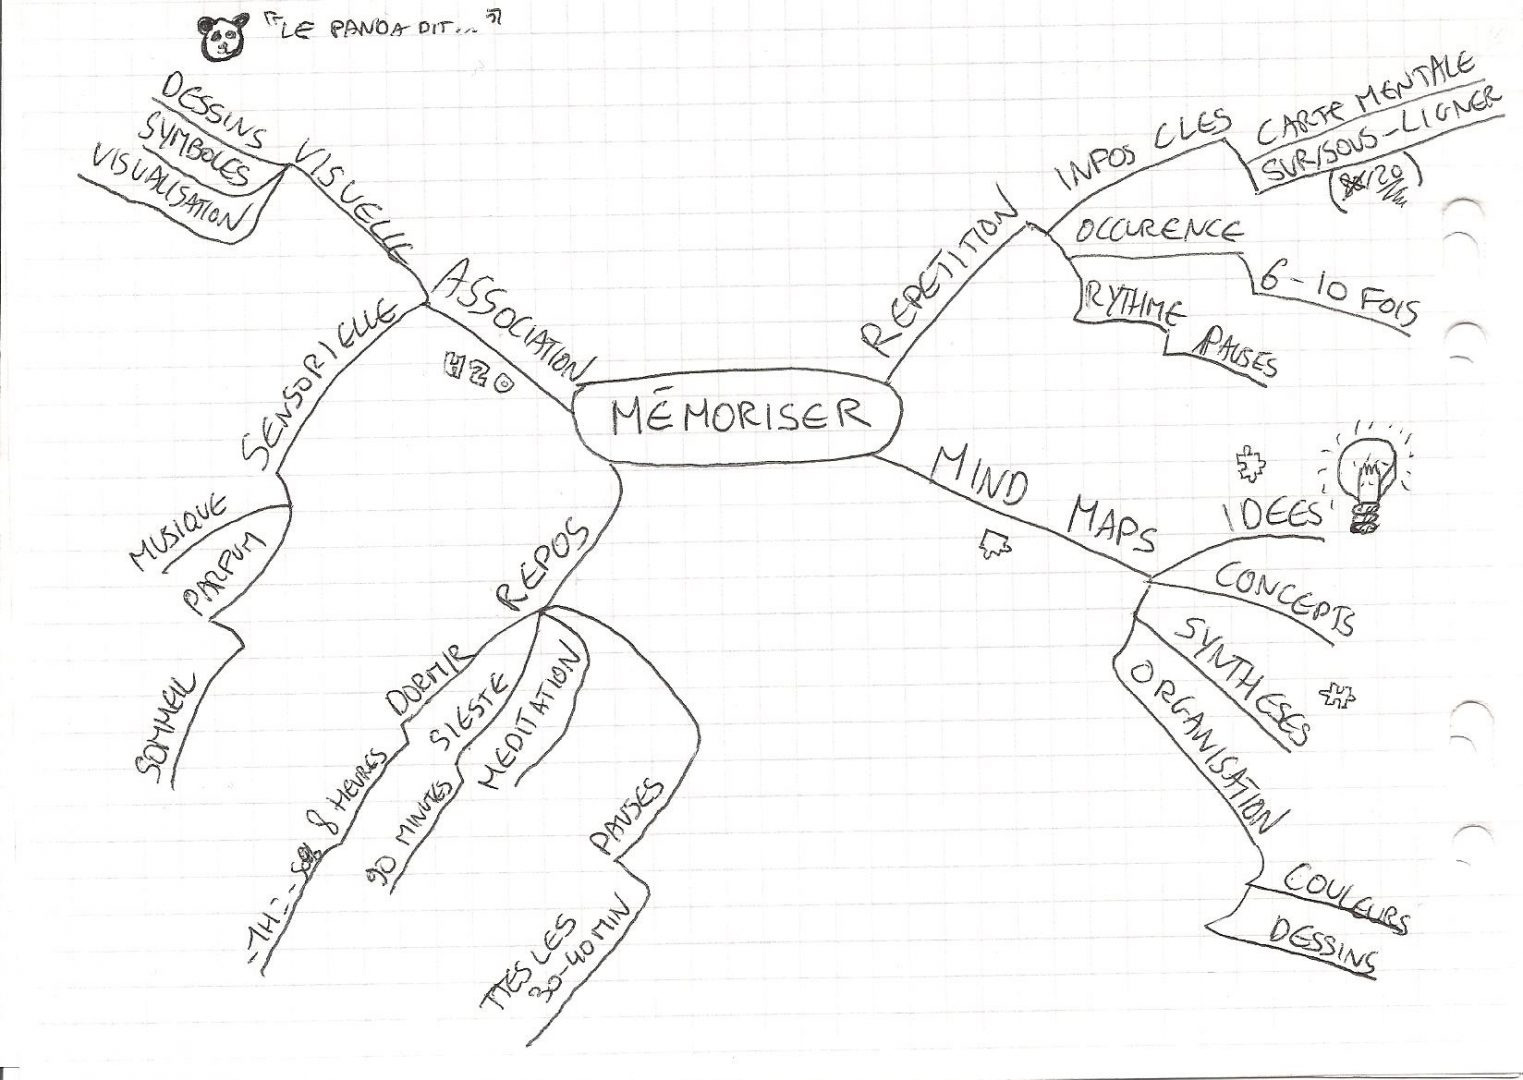 "LE PANDA DIT..."
DESSINS
SYMBOLES
VISUALISATION
VISUELLE
ASSOCIATION
H2O
SENSORIELLE
MUSIQUE
PARFUM
SOMMEIL
MÉMORISER
REPOS
DORMIR
8 HEURES
-1H =
SIESTE
90 MINUTES
MEDITATION
PAUSES
TTES LES
30-40 MIN
REPETITION
INFOS CLES
CARTE MENTALE
SUR/SOUS-LIGNER
OCCURENCE
6-10 FOIS
RYTHME
PAUSES
MIND MAPS
IDEES
CONCEPTS
SYNTHESES
ORGANISATION
COULEURS
DESSINS